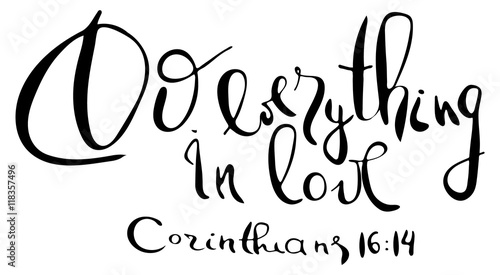 Do everything
in love
Corinthians 16:14
Adobe Stock | #118357496